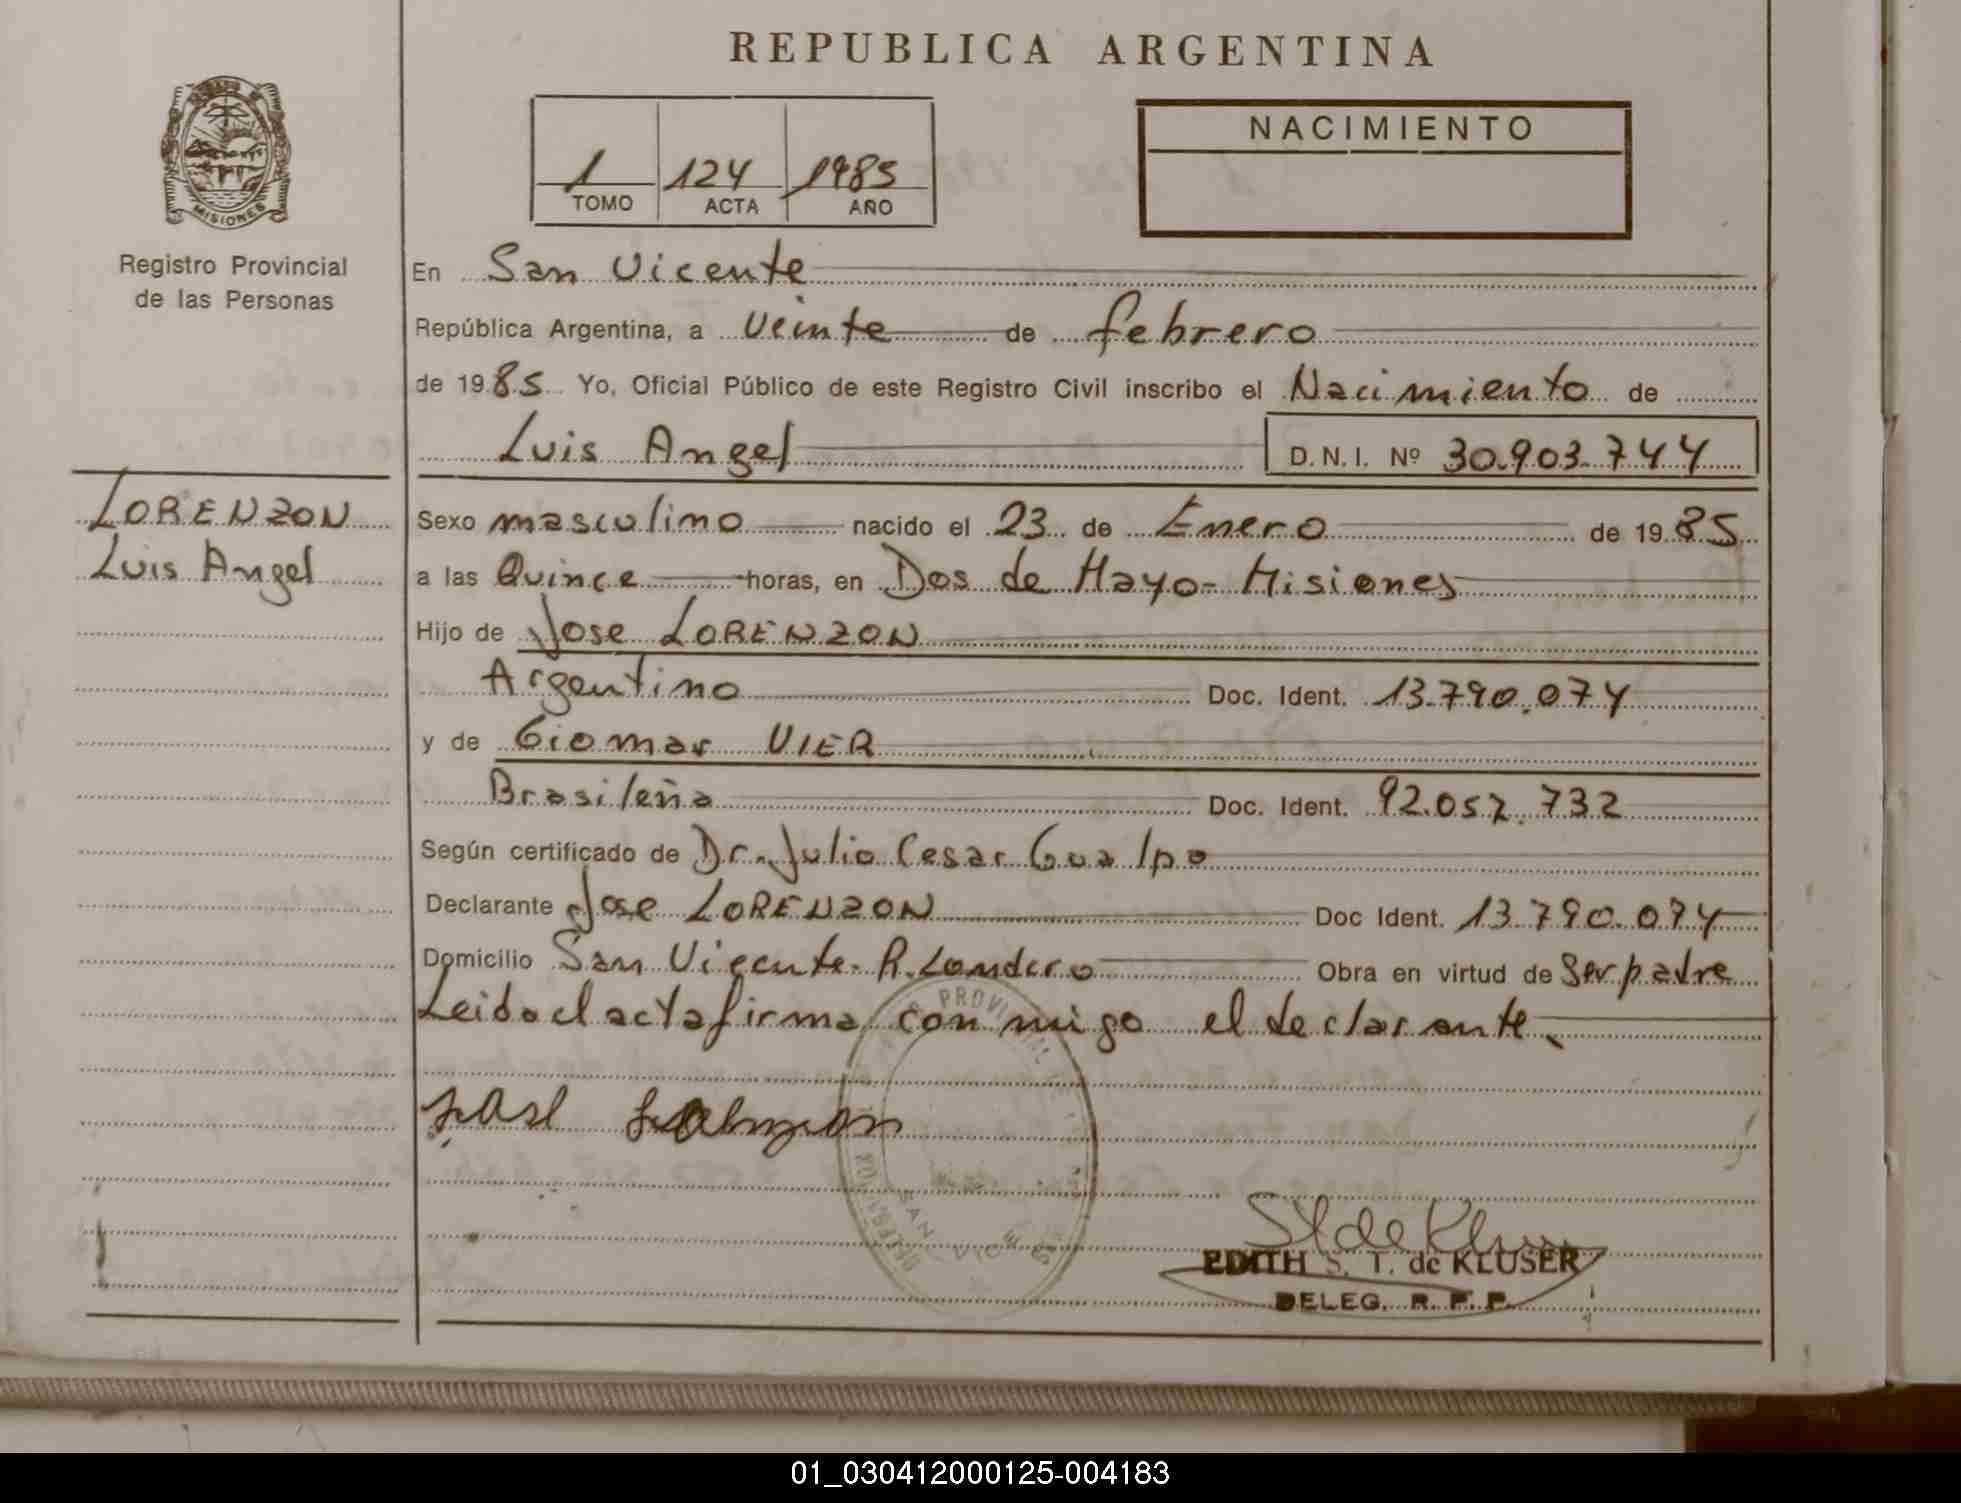 REPUBLICA ARGENTINA
MISIONES
Registro Provincial
de las Personas
1 124 1985
TOMO ACTA AÑO
NACIMIENTO
En San Vicente
República Argentina, a Veinte de febrero
de 1985 Yo, Oficial Público de este Registro Civil inscribo el Nacimiento de
Luis Angel D.N.I. Nº 30.903.744
LORENZON
Luis Angel
Sexo masculino nacido el 23 de Enero de 1985
a las Quince horas, en Dos de Mayo- Misiones
Hijo de Jose LORENZON
Argentino Doc. Ident. 13.790.074
y de Giomar VIER
Brasileña Doc. Ident. 92.052.732
Según certificado de Dr. Julio Cesar Gualpo
Declarante Jose LORENZON Doc Ident. 13.790.074
Domicilio San Vicente- R. Londero Obra en virtud de Ser padre
Leido el acta firma con migo el declarante.
EDITH S. T. de KLUSER
DELEG. R. P. P.
01_030412000125-004183